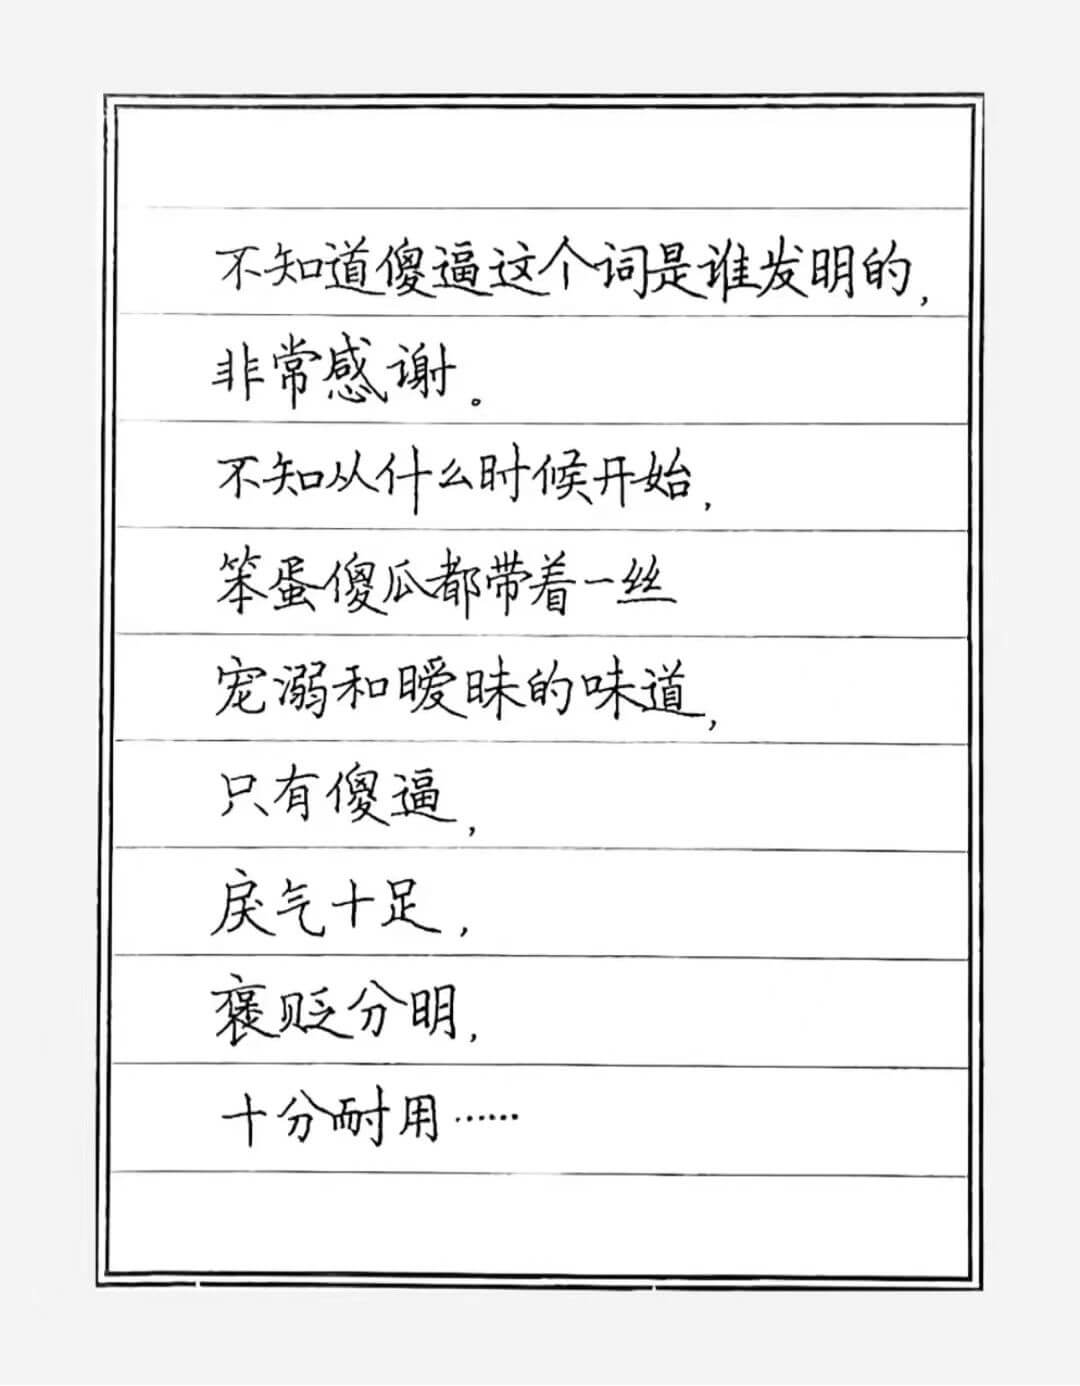 不知道傻逼这个词是谁发明的,
非常感谢。
不知从什么时候开始,
笨蛋傻瓜都带着一丝
宠溺和暧昧的味道,
只有傻逼,
戾气十足,
褒贬分明,
十分耐用……